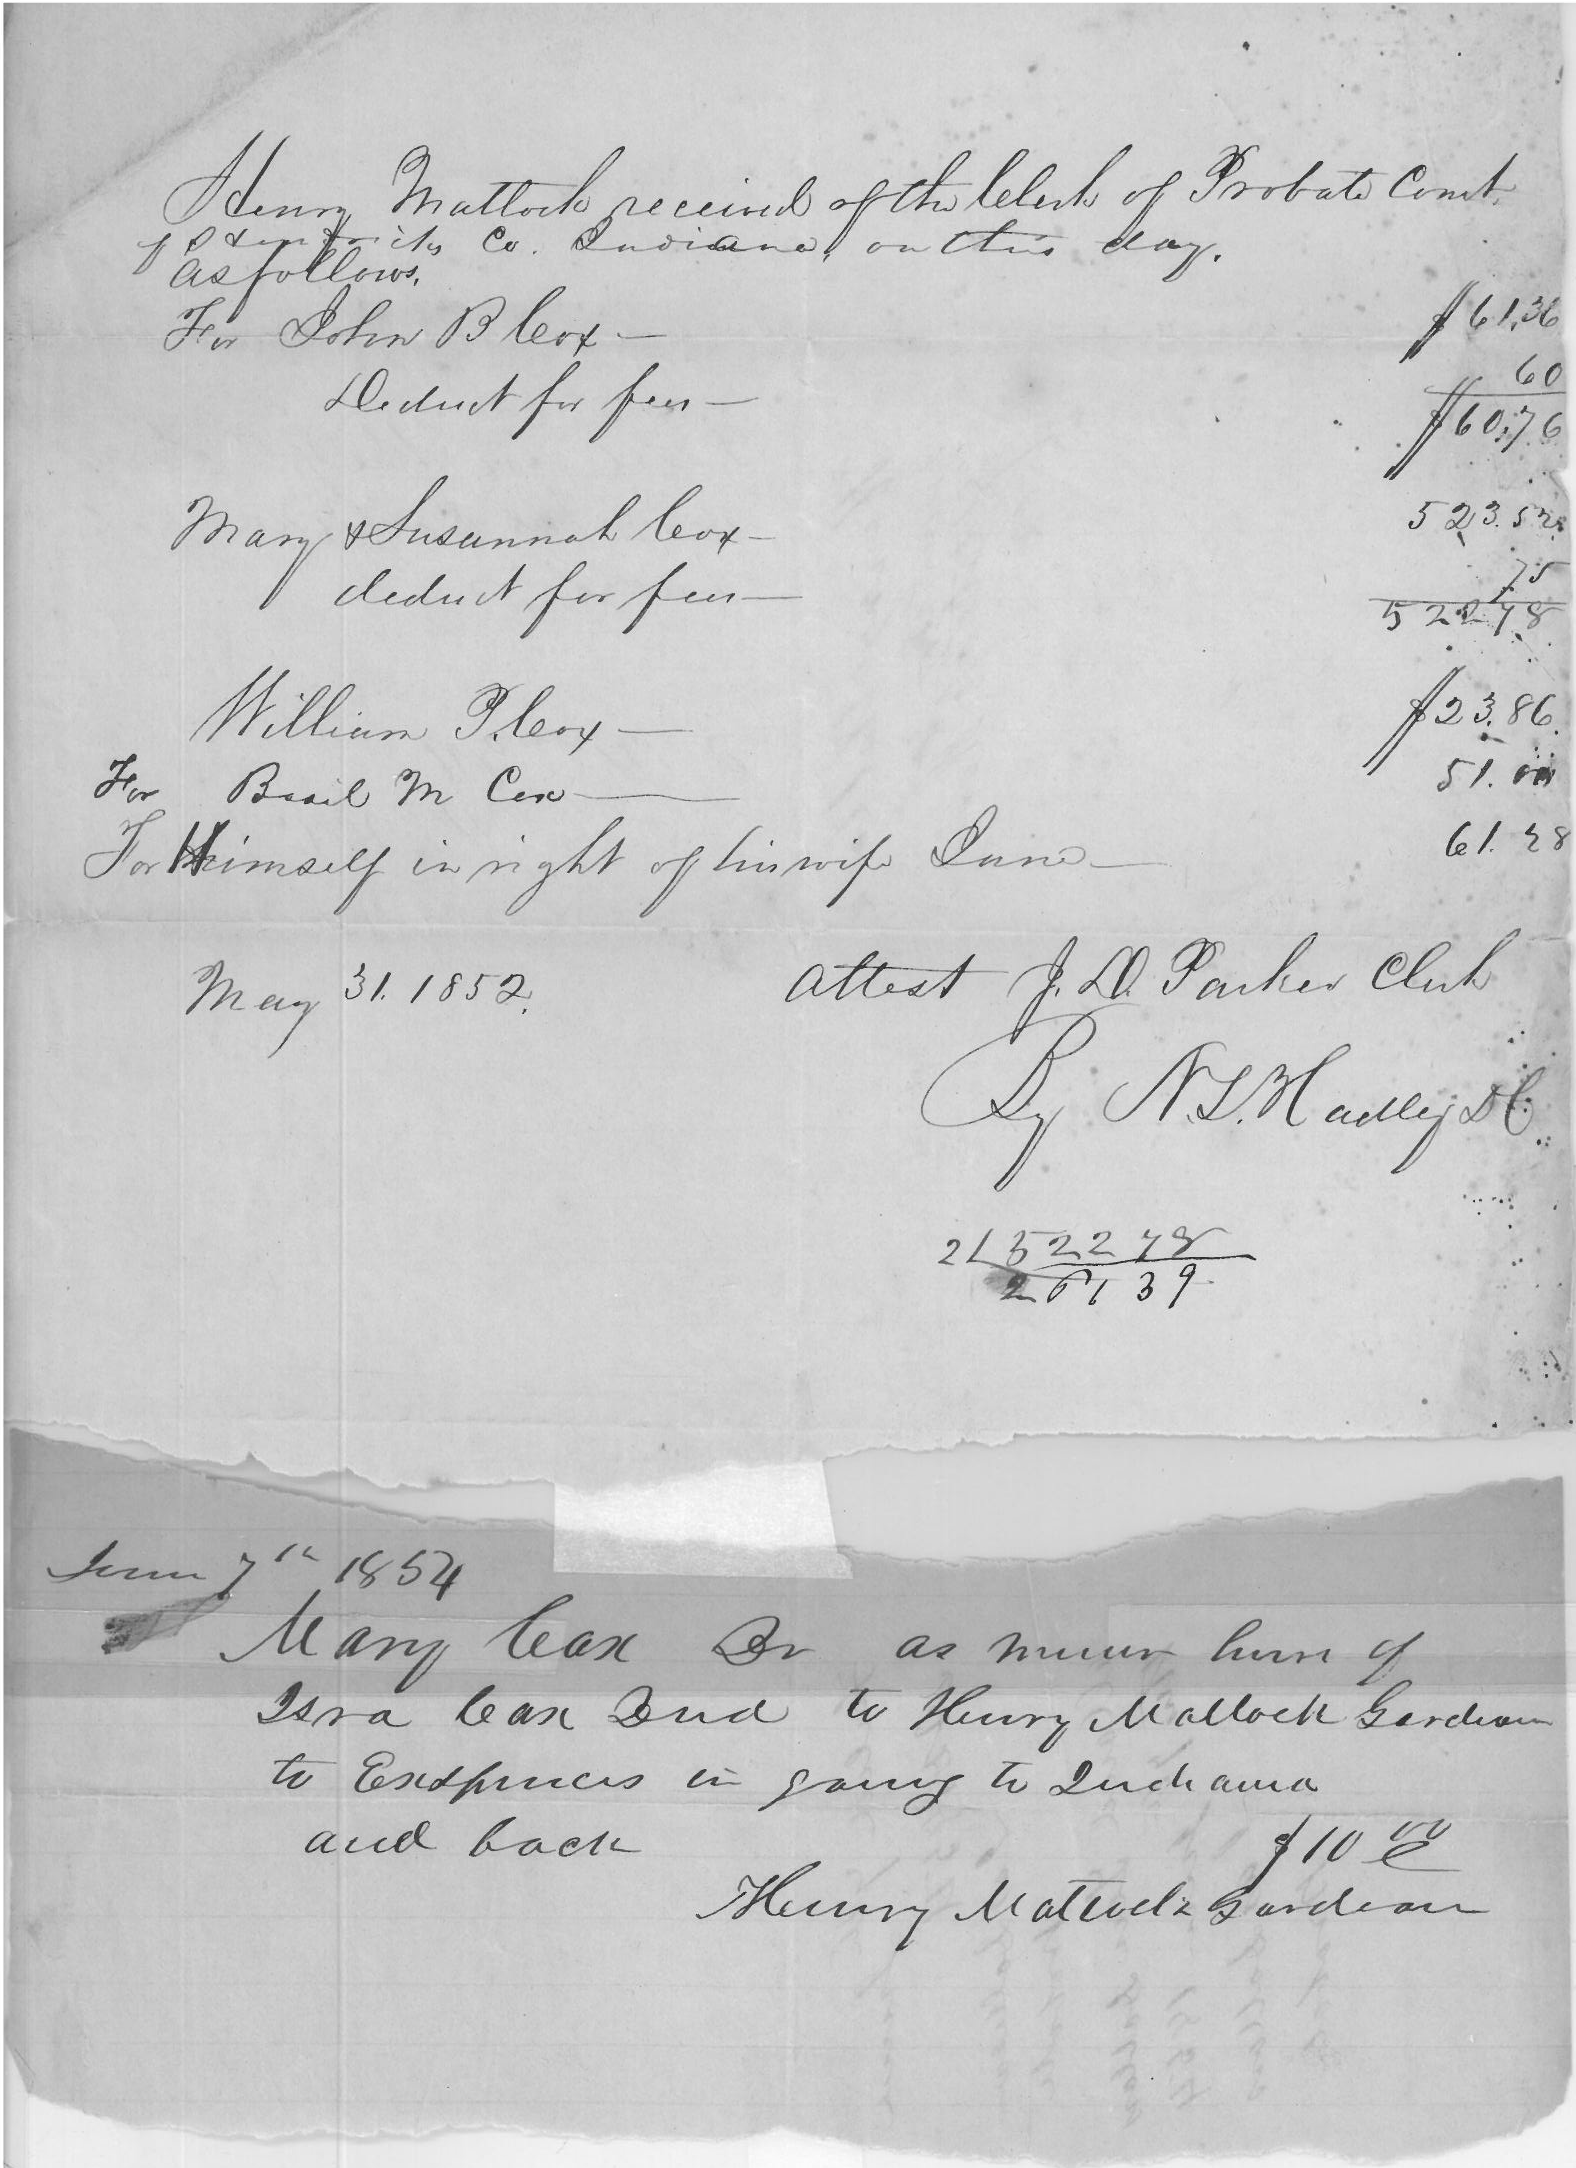 Henry Mattock received of the Clerk of Probate Court
of Hendricks Co. Indiana, on this day.
as follows.
For John B Cox — $61,36
Deduct for fees — 60
$60,76
Mary & Susannah Cox — 523.53
deduct for fees — 75
522 78
William P. Cox — $23.86
For Basil M Cox — 51.00
For Himself in right of his wife Jane — 61.28
May 31. 1852. attest J. D. Parker Clerk
By N. S. Hadley DC.
2/522 78
261 39
June 7th 1854
Mary Cox Dr as minor hire of
Isra Cox Dud to Henry Matlock Gardean
to Exspences in going to Indiana
and back $10 00
Henry Matlock Gardean